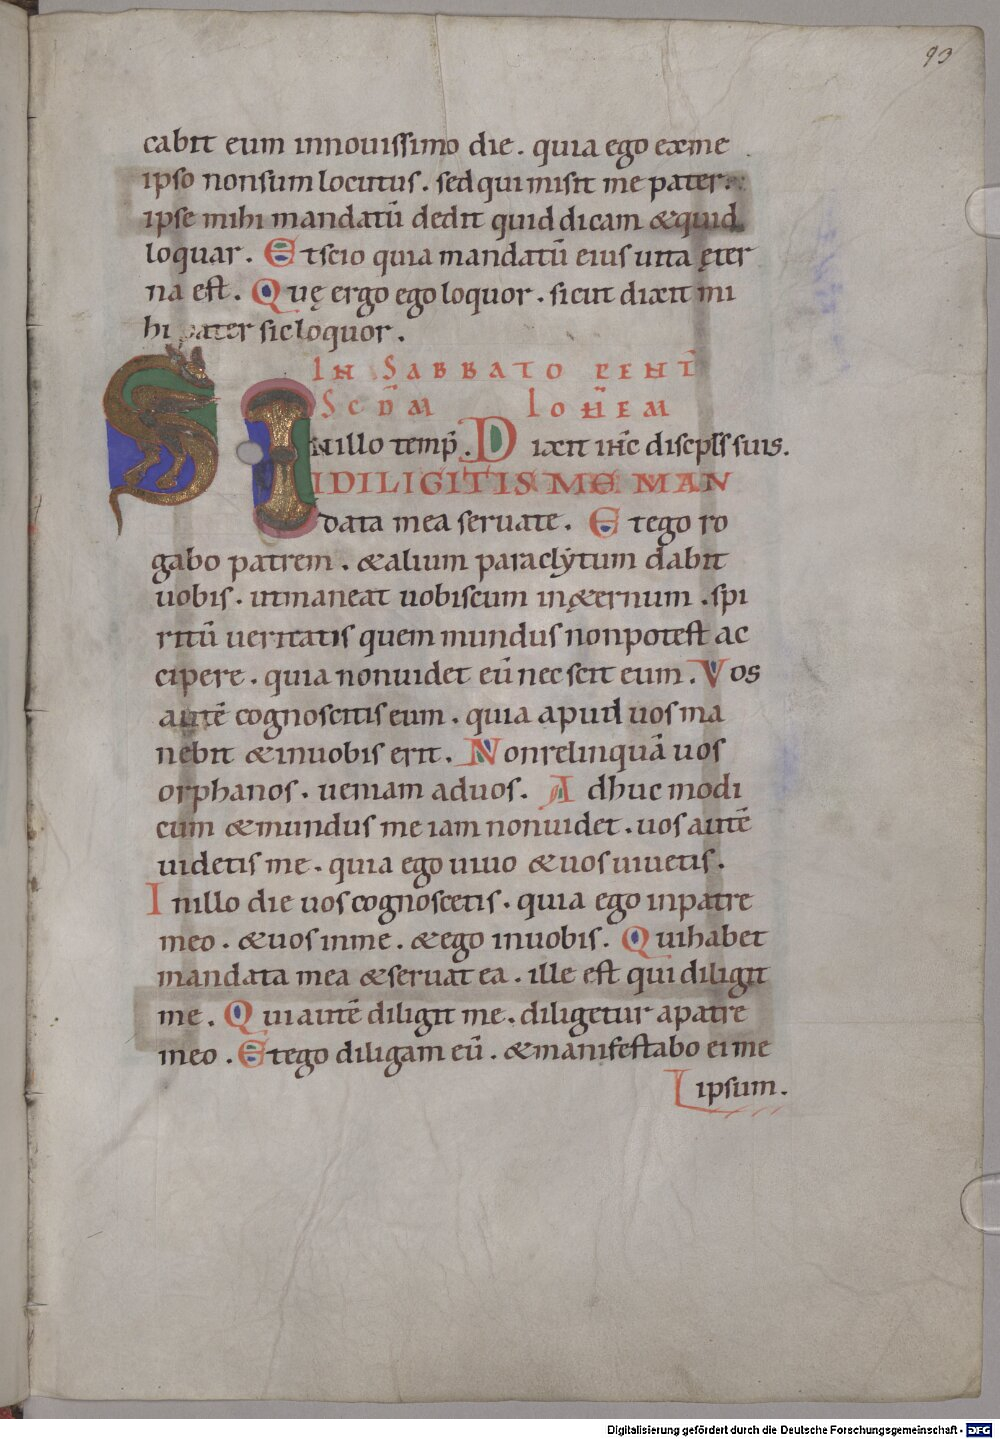 93
cabit eum innouissimo die. quia ego exme
ipso nonsum locutus. sed qui misit me pater.
ipse mihi mandatū dedit quid dicam &quid
loquar. Et scio quia mandatū eius uita ęter
na est. Quę ergo ego loquor. sicut dixit mi
hi pater sic loquor.
IN SABBATO PENT̄
SCD̄M IOH̄EM
IN illo temp̄. Dixit ih̄c discip̄ls suis.
SI DILIGITIS ME MAN
data mea seruate. Et ego ro
gabo patrem. &alium paraclẏtum dabit
uobis. utmaneat uobiscum in&ernum. spi
ritū ueritatis quem mundus nonpotest ac
cipere. quia nonuidet eū nec scit eum. Vos
autē cognoscitis eum. quia apud uos ma
nebit &inuobis erit. Nonrelinquā uos
orphanos. ueniam aduos. Adhuc modi
cum &mundus me iam nonuidet. uos autē
uidetis me. quia ego uiuo &uos uiuetis.
Inillo die uos cognoscetis. quia ego inpatre
meo. &uos inme. &ego inuobis. Quihabet
mandata mea &seruat ea. ille est qui diligit
me. Quiautē diligit me. diligetur apatre
meo. Etego diligam eū. &manifestabo ei me
ipsum.
Digitalisierung gefördert durch die Deutsche Forschungsgemeinschaft - DFG